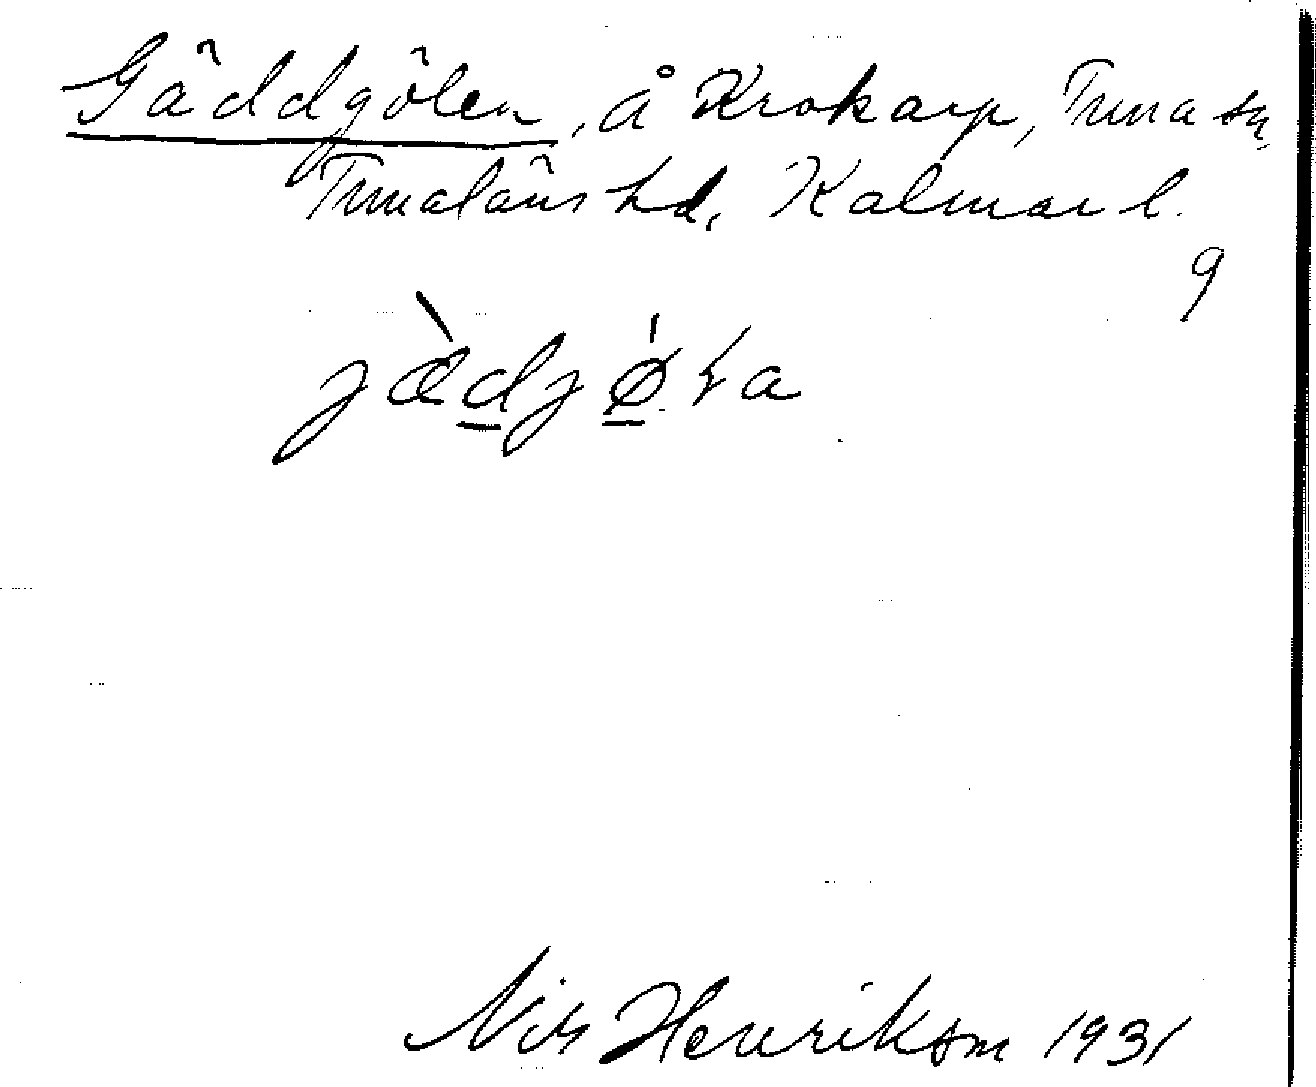 Gäddgölen, å Krokarp, Tuna sn,
Tunaläns hd, Kalmar l.
9
jæ̀djø̍ɽa
Nils Henrikson 1931